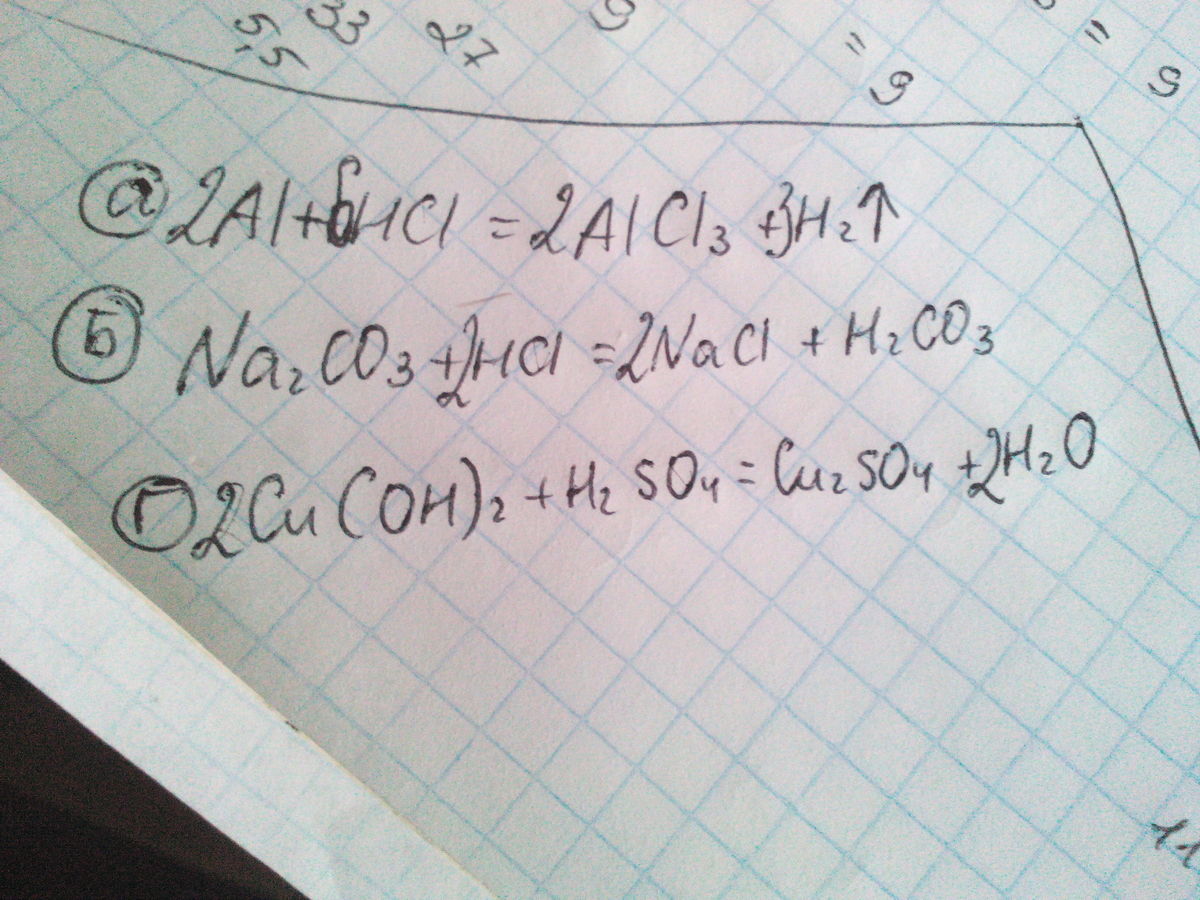 5,5 33 27 9 " 9 " 9
а 2Al+6HCl = 2AlCl₃ +3H₂↑
Б Na₂CO₃+2HCl =2NaCl + H₂CO₃
Г 2Cu(OH)₂ + H₂SO₄ = Cu₂SO₄ +2H₂O
11